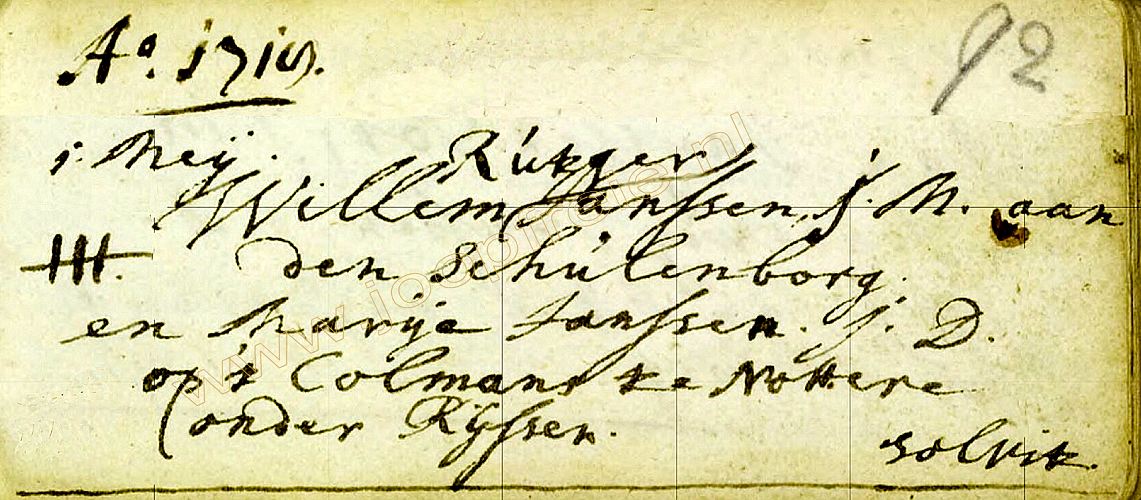 Aº. 1719.
92
1. Meij.
Rutger
Willem Janssen, j. M. aan
III. den Schúlenborg.
en Marije Janssen. j. D.
op 't Colmans te Nottere
(onder Rijssen.
solvit.
www.joopinfo.nl